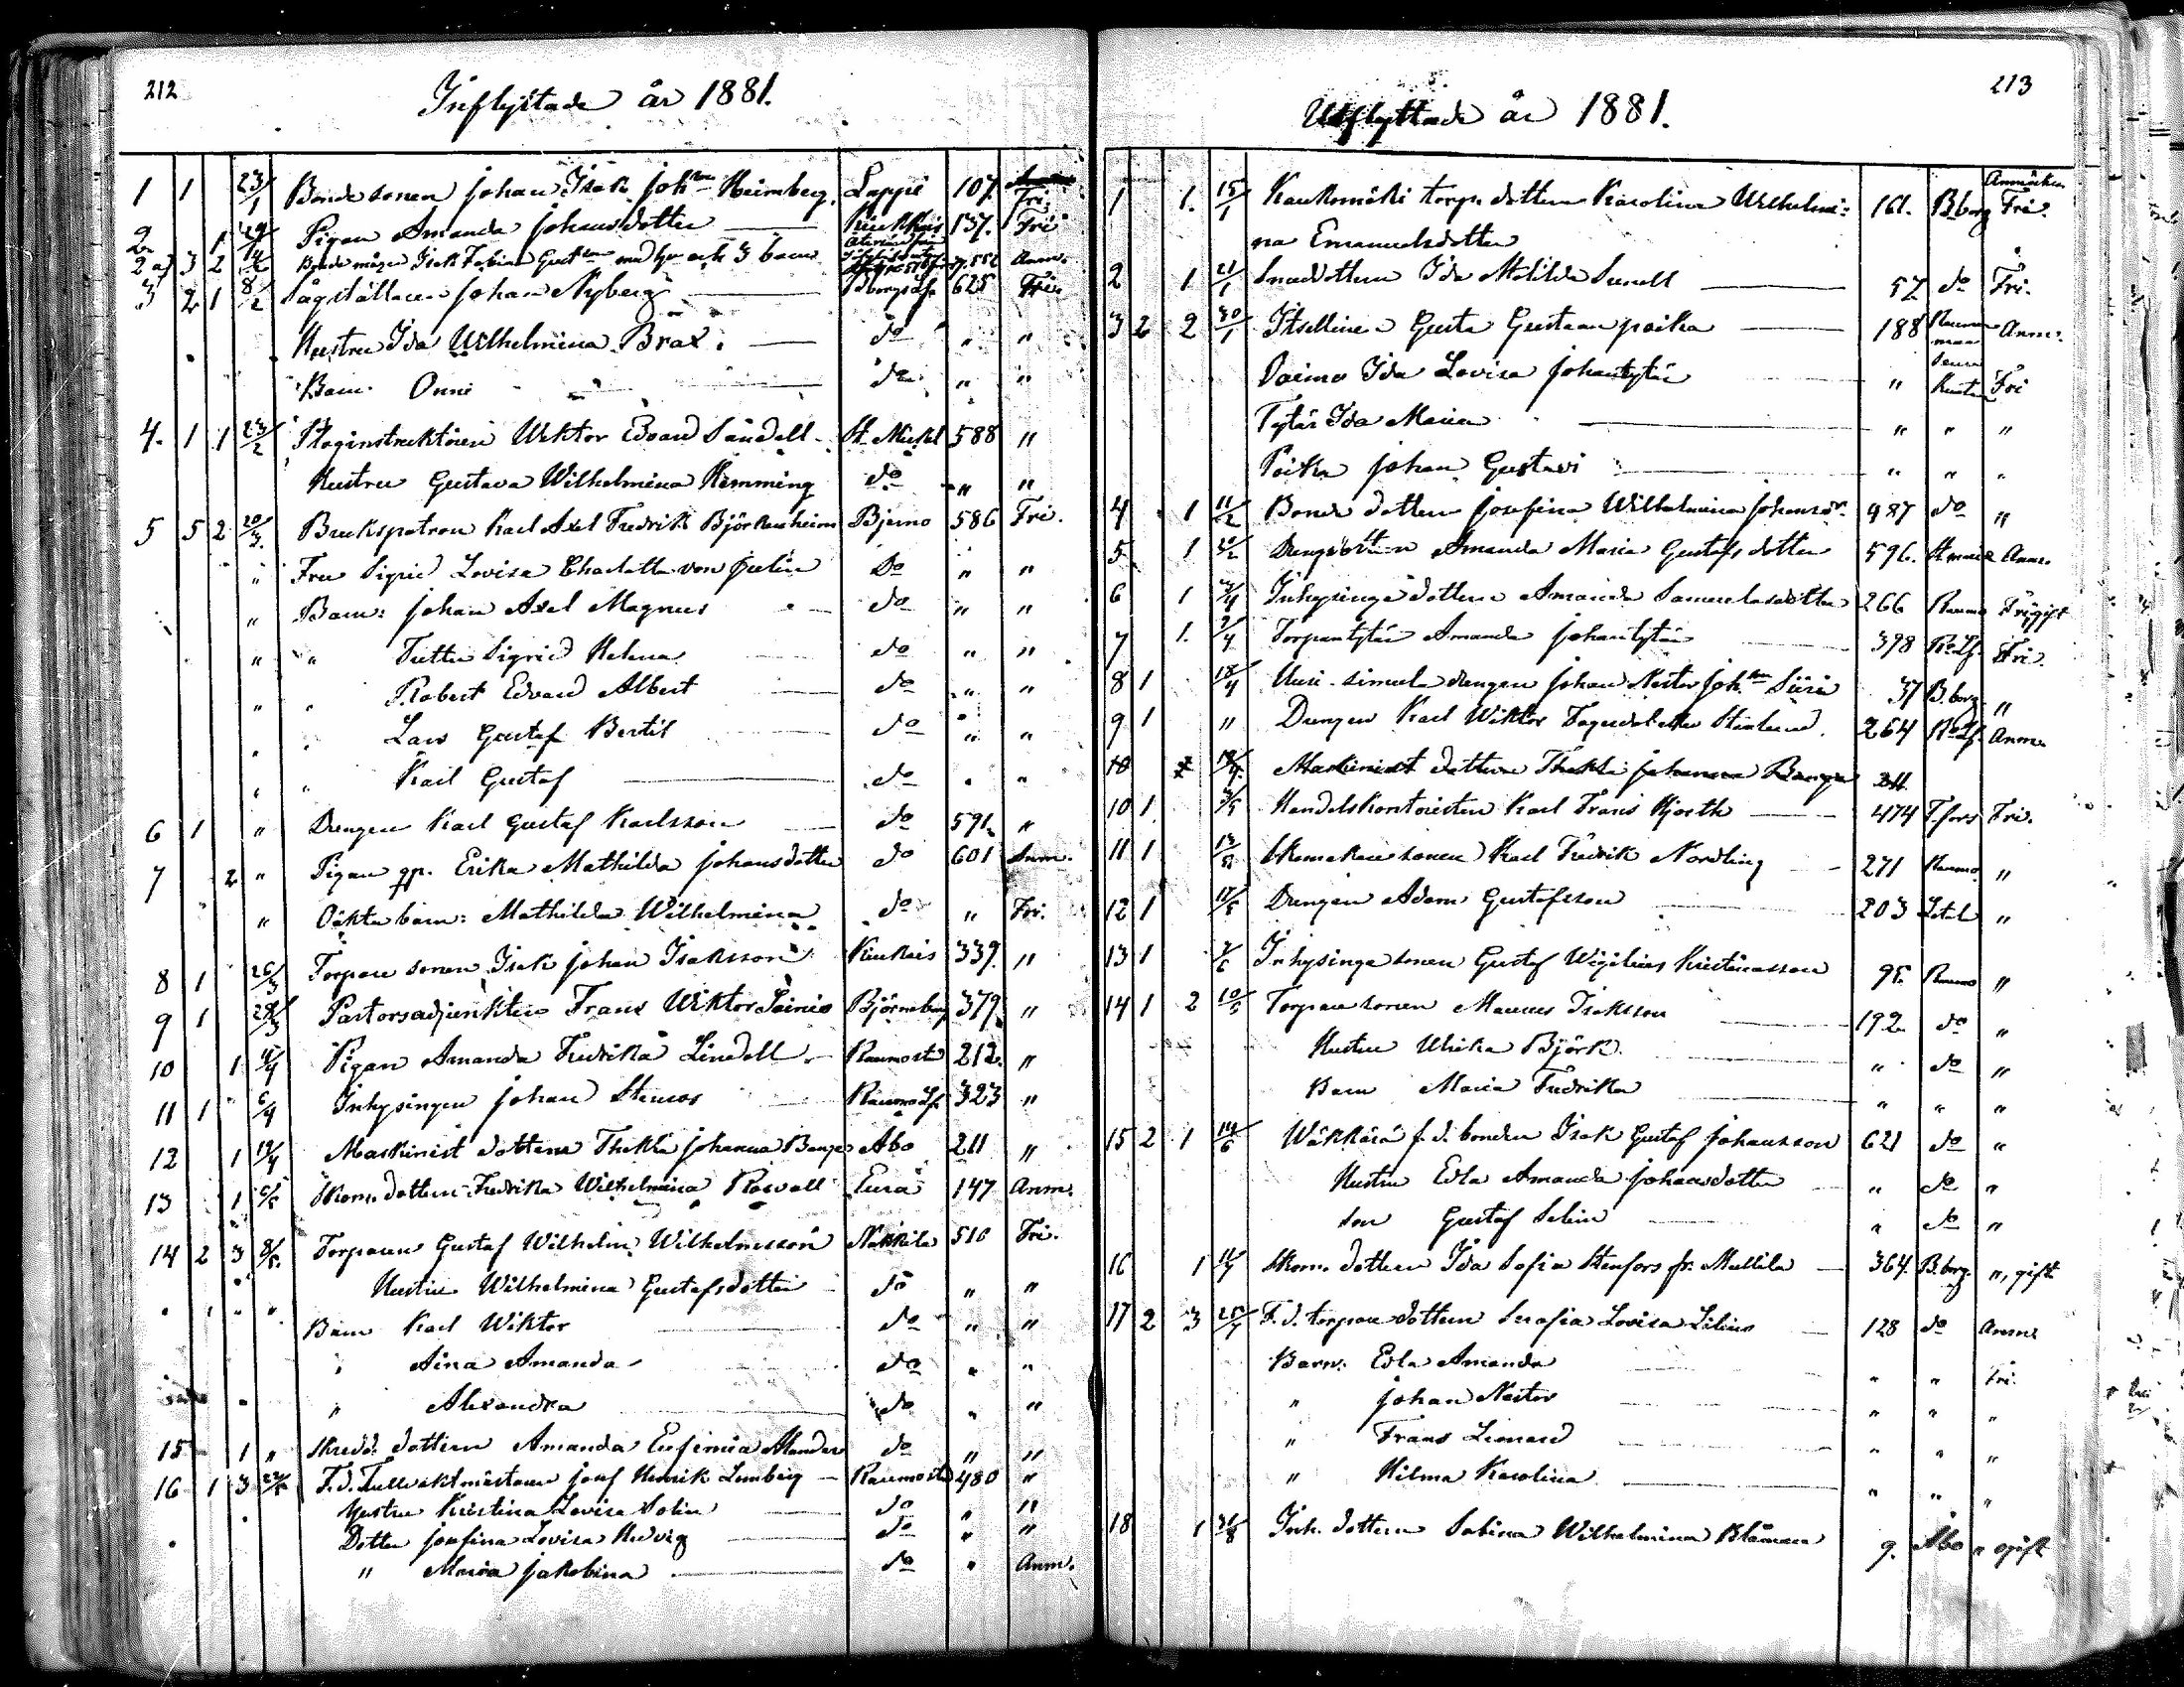 212
Inflyttade år 1881.
1 1 23/1 Bondesonen Johan Isak Johsson Heimberg Lappi 107. Fri.
2 1 Pigan Amanda Johansdotter Kiukkais 137. Fri
2 a) 3 2 14/2 Isak Fabian med hu och 3 barn 552 Anm.
3 2 1 8/2 Johan Nyberg 625 Fri.
Hustru Ida Wilhelmina Bräx do " "
Barn Onni do " "
4. 1 1 23/2 Wiktor Edvard Sandell St. Mickel 588 "
Hustru Gustava Wilhelmina Hemming do " "
5 5 2 20/3. Brukspatron Karl Axel Fredrik Björkenheim Bjerno 586 Fri.
" Fru Sigrid Lovisa Charlotta von Julin Do " "
" Barn: Johan Axel Magnus do " "
" " Sigrid Helena do " "
" " Robert Edvard Albert do " "
" " Lars Gustaf Bertil do " "
" " Karl Gustaf do " "
6 1 " Drengen Karl Gustaf Karlsson do 591. "
7 2 " Pigan Erika Mathilda Johansdotter do 601 Anm.
" Oäkta barn: Mathilda Wilhelmina do " Fri.
8 1 26/3 Torpare sonen Isak Johan Isaksson Kiukais 339. "
9 1 Pastorsadjunkten Frans Wiktor Björneborg 379. "
10 1 4/4 Pigan Amanda Fredrika Lindell Raumo st 212. "
11 1 6/4 Inhysingen Johan Stenroos Raumo Lf 323 "
12 1 19/4 Maskinist dottern Thekla Johanna Åbo 211 "
13 1 Skom. dottern Fredrika Wilhelmina Eura 147 Anm.
14 2 3 8/5. Torparen Gustaf Wilhelm Wilhelmsson Nakkila 510 Fri.
Hustru Wilhelmina Gustafsdotter do " "
Barn Karl Wiktor do " "
" Aina Amanda do " "
" Alexandra do " "
15 1 " Skredd. dottern Amanda Eufemia do " "
16 1 3 F. d. Josef Henrik Raumo st 480 "
Hustru Kristina Lovisa Solin do " "
Dotter Josefina Lovisa Hedvig do " "
" Maria Jakobina do " Anm.
213
Utflyttade år 1881.
1 1. 15/1 Kaukomäki torp. dottern Karolina Wilhelmi- 161. B.borg Fri.
na Emanuelsdotter
2 1 21/1 Ida Matilda 57. do Fri.
3 2 2 30/1 Itsellinen Gusta Gustaan poika 188 Anm.
Vaimo Ida Lovisa Johantytär " Fri
Tytär Ida Maria " " "
Poika Johan Gustavi " " "
4 1 11/2 Bonde dottern Josefina Wilhelmina 987 do "
5 1 Amanda Maria Gustafs dotter 596. Anm.
6 1 Inhysinge dottern Amanda Samuelsdotter 266 Raumo Fri, gift
7 1. 2/4 Torpantytär Amanda Johantytär 398 Fri.
8 1 18/4 Uusi-simula drengen Johan Nestor Johsson 37 B.borg "
9 1 " Drengen Karl Wiktor 264 Anm.
10 Maskinist dottern Thekla Johanna 211.
10 1 Handelskontoristen Karl Frans Hjorth 474 T.fors Fri.
11 1 Skomakare sonen Karl Fredrik Nordling 271 Raumo "
12 1 Drengen Adam Gustafsson 203 "
13 1 Inhysinge sonen Gustaf Kristinasson 95. Raumo "
14 1 2 Torpare sonen Isaksson 192 do "
Hustru Ulrika Björk " do "
Barn Maria Fredrika " " "
15 2 1 14/6 f. d. bonden Isak Gustaf Johansson 621 do "
Hustru Edla Amanda Johansdotter " do "
Son Gustaf Selim " do "
16 1 Skom. dottern Ida Sofia Stenfors fr. 364. B.borg. ", gift
17 2 3 25/7 F. d. torpare dottern Serafia Lovisa Lilius 128 do Anm.
Barn: Edla Amanda " " Fri.
" Johan Nestor " " "
" Frans Leonard " " "
" Hilma Karolina " " "
18 1 31/8 Inh. dottern Sabina Wilhelmina 9. Åbo " ogift